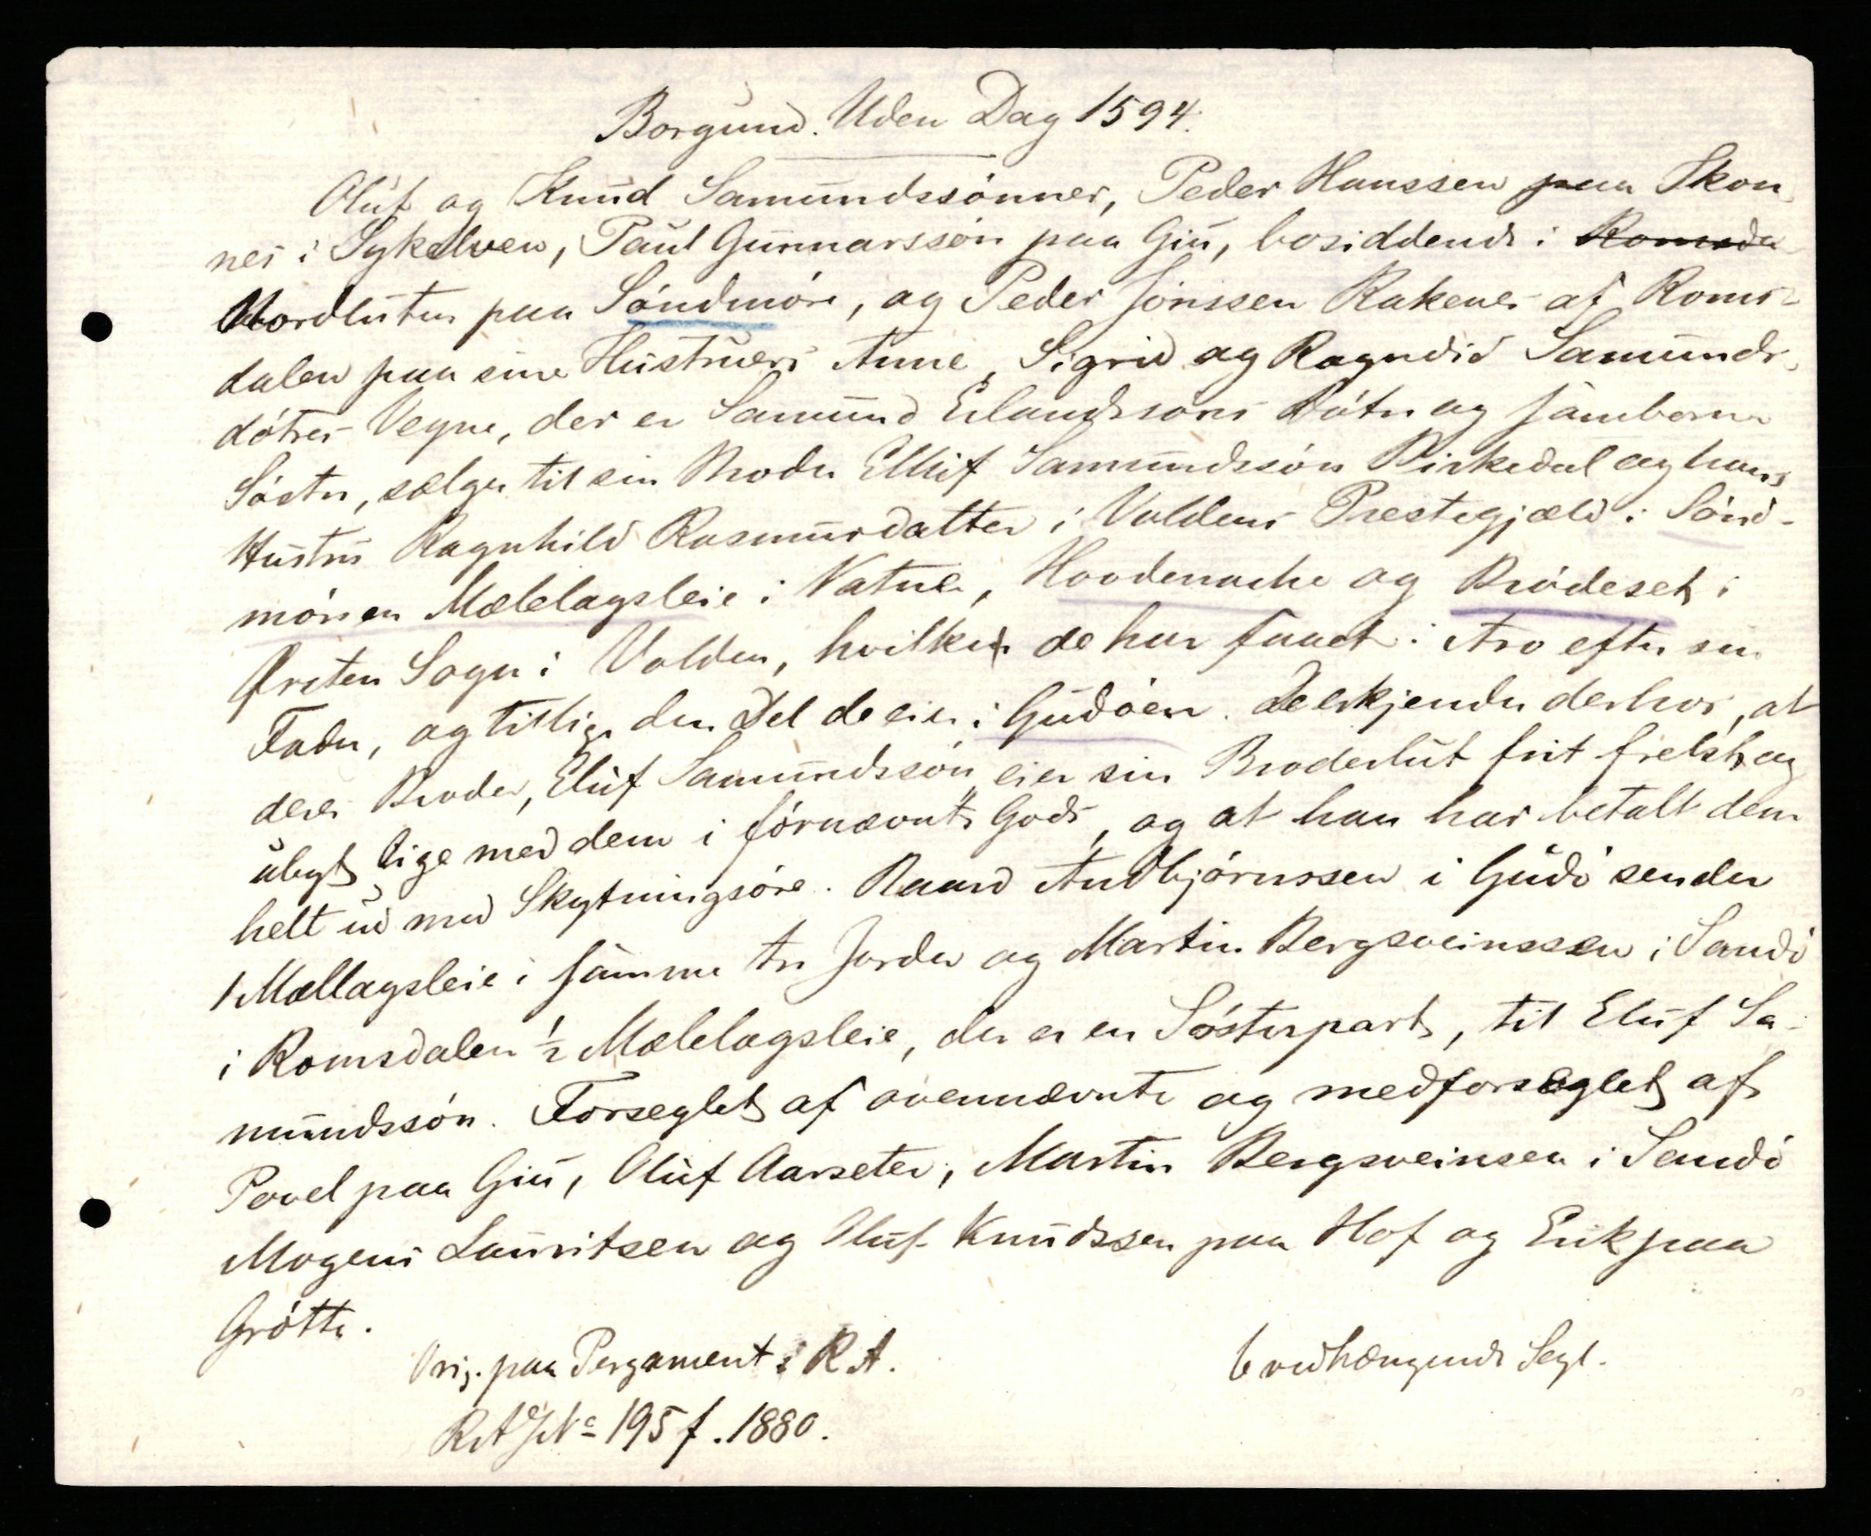 Borgund. Uden Dag 1594.
Oluf og Knud Samundssönner, Peder Hanssen paa Skon-
nes i Sykelven, Paul Gunnarssön paa Giu, bosiddende i Romsda
Nordluten paa Söndmöre, og Peder Jonssen Rakenes af Roms-
dalen paa sine Hustruers Anne, Sigrid og Ragndid Samunds-
dötres Vegne, der er Samund Erlandssons Dötre og samborne
Söstre, sælger til sin Broder Elluf Samundssön Birkedal og hans
Hustru Ragnhild Rasmusdatter i Voldens Prestegjæld i Sönd-
mören Mælelagsleie i Vatne, Hovdenakke og Brödeset i
Ørsten Sogn i Volden, hvilke de har faaet i Arv efter sin
Fader, og tillige den Del de eier i Gudöen. De erkjender derhos, at
deres Broder, Eluf Samundssön eier sin Broderlut frit frelst og
ubyt lige med dem i förnævnte Gods, og at han har betalt dem
helt ud med Skytningsöre. Raard Audbjörnssen i Gudö sender
1 Mællagsleie i samme tre Jorder og Martin Bergsveinssen i Sandö
i Romsdalen ½ Mælelagsleie, der er en Sösterpart, til Eluf Sa-
mundssön. Forseglet af ovennævnte og medforseglet af
Povel paa Giu, Oluf Aarseter, Martin Bergsveinsen i Sandö
Mogens Lauritsen og Oluf Knudssen paa Hof og Erik paa
Grötte.
Orig. paa Pergament i R A.
6 vedhængende Segl.
RA J No 195 f. 1880.